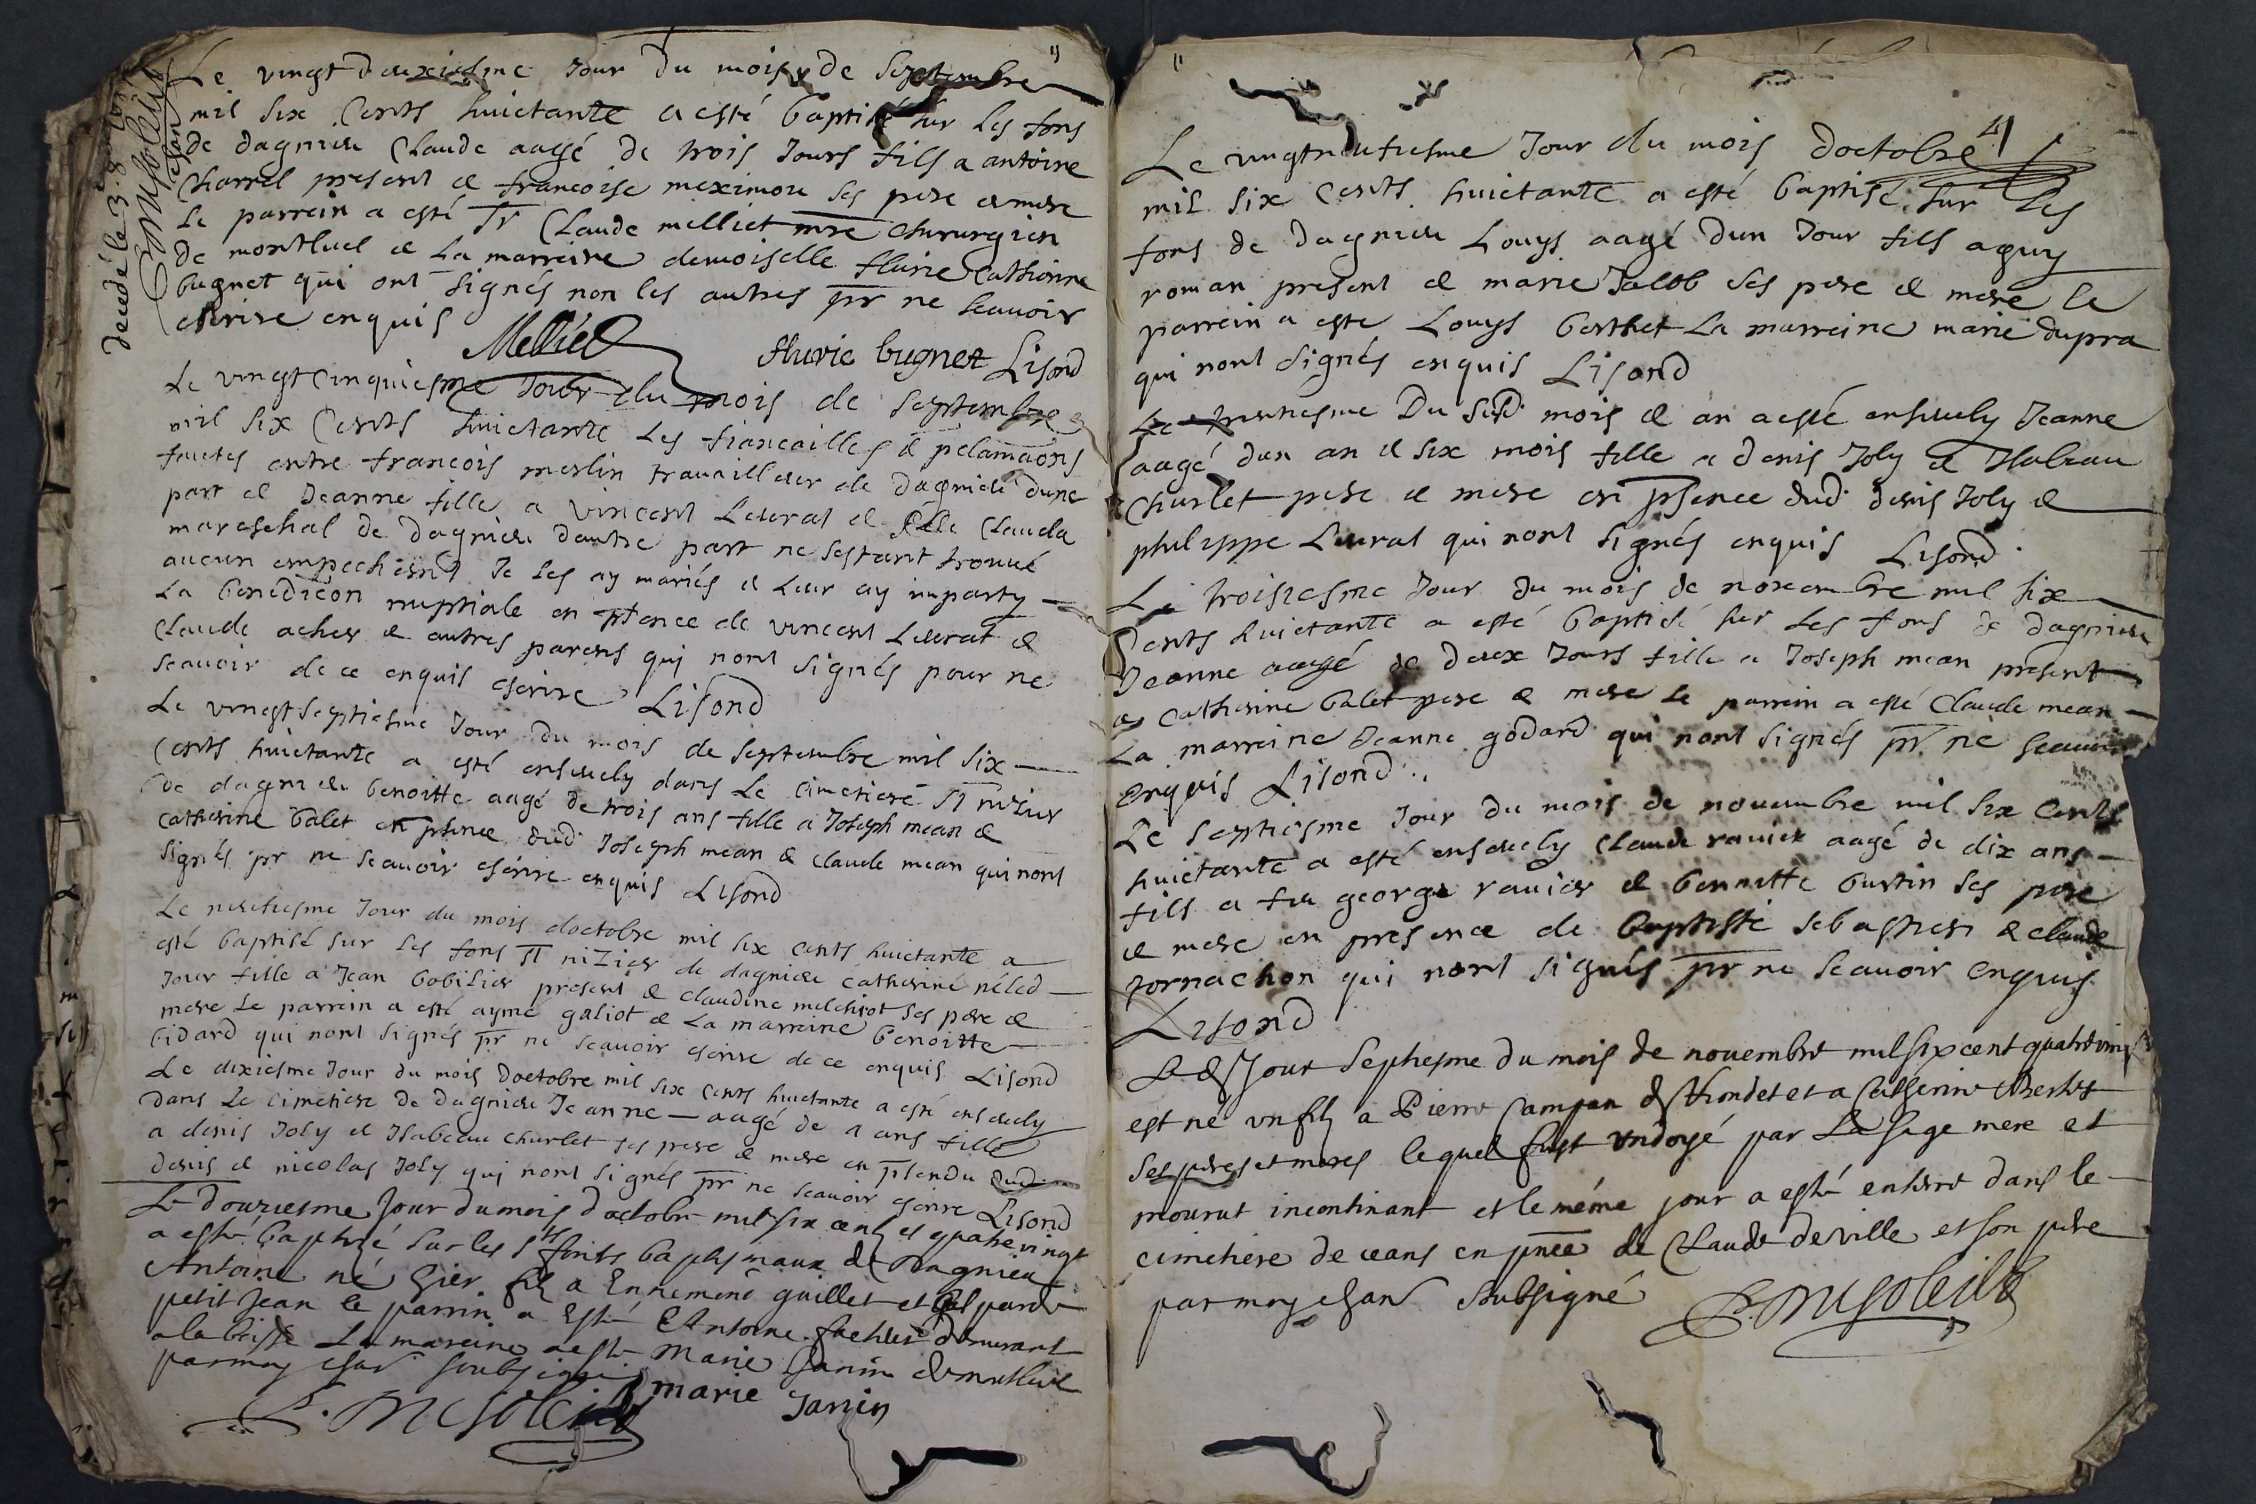 Le vingt deuxiesme Jour du mois de Septembre
mil six Cents huictante a esté baptisé sur les fons
de dagnieu Claude aagé de trois Jours fils a antoine
Charrel present et francoise meximieu ses pere et mere
Le parrein a esté Sr Claude melliet mre chirurgien
de montluel et La marreine demoiselle flurie Catherine
bugnet qui ont signés non les autres pr ne scauoir
escrire enquis
Melliet flurie bugnet Lisond
Le vingt cinquiesme Jour du mois de Septembre
mil six Cents huictante Les fiancailles et
faictes entre francois merlin travailleur de dagnieu dune
part et Jeanne fille a vincent Leurat et Clauda
mareschal de dagnieu dautre part ne sestant trouué
aucun empechemt Je les ay mariés et Leur ay imparty
La benediction nuptiale en pnce de vincent Leurat et
Claude acher et autres parens qui nont signés pour ne
scauoir de ce enquis escrire Lisond
Le vingt septiesme Jour du mois de septembre mil six
Cents huictante a esté enseuely dans Le cimetiere St nizier
de dagnieu benoitte aagé de trois ans fille a Joseph mean et
Catherine balet en pnce dud. Joseph mean et claude mean qui nont
signés pr ne scauoir escrire enquis Lisond
Le neufiesme Jour du mois doctobre mil six cents huictante a
esté baptisé sur les fons St niZier de dagnieu catherine né led
Jour fille a Jean bobilier present et claudine melchiot ses pere et
mere Le parrein a esté aymé galiot et La marreine benoitte
bidard qui nont signés pr ne scauoir escrire de ce enquis Lisond
Le dixiesme Jour du mois doctobre mil six cents huictante a esté enseuely
dans Le cimetiere de dagnieu Jeanne aagé de 2 ans fille
a denis Joly et Isabeau churlet ses pere et mere en dud
denis et nicolas Joly qui nont signés pr ne scauoir escrire Lisond
Le douziesme Jour du mois doctobre mil six cens et quatre vingt
a esté baptisé sur les Sts fonts baptismaux de Dagnieu
Antoine né hier filz a Ennemond guillet et
petit Jean le parrin a Esté Antoine demeurant
a la La mareine a esté Marie Janin de
par moy soubsigné
marie Janin
Le vingtneufiesme Jour du mois doctobre
mil six cents huictante a esté baptisé sur Les
fons de dagnieu Louys aagé dun Jour fils a guy
roman present et marie Jacob ses pere et mere Le
parrein a este Louys berthet La marreine marie dupra
qui nont signés enquis Lisond
Le trentiesme Du susd. mois et an a esté enseuely Jeanne
aagé dun an et six mois fille a denis Joly et Isabeau
Churlet pere et mere en psence dud. denis Joly et
philippe Leurat qui nont signés enquis Lisond
Le troisiesme Jour du mois de nouembre mil six
Cents huictante a esté baptisé sur Les fons de dagnieu
Jeanne aagé de deux Jours fille a Joseph mean present
et catherine balet pere et mere Le parrein a esté Claude mean
La marreine Jeanne godard qui nont signés pr ne scauoir
enquis Lisond
Le septiesme Jour du mois de nouembre mil six Cents
huictante a esté enseuely Claude rauier aagé de dix ans
fils a feu george rauier et bennoitte burtin ses pere
et mere en presence de baptiste sebastien et claude
pornachon qui nont signés pr ne scauoir enquis
Lisond
Le dit Jour septiesme du mois de nouembre mil six cent quatrevingt
est né un filz a Pierre Campan dit et a Catherine Berlet
ses peres et meres lequel fust ondoyé par La sage mere et
mourut incontinant et le méme jour a esté enterré dans le
cimetiere de ceans en pnce de Claude deville et son pere
par moy soubsigné